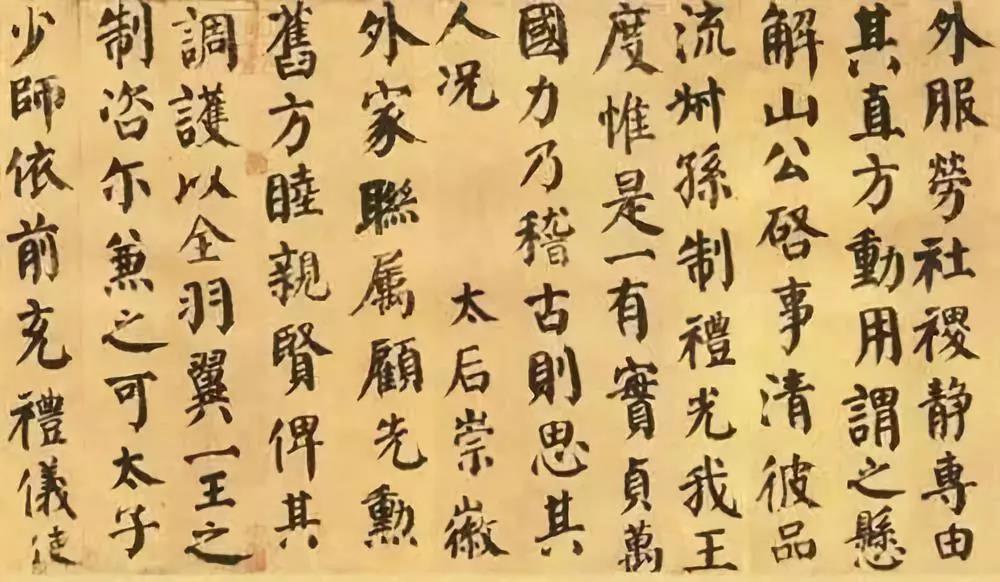 外服勞社稷静專由
其直方動用謂之懸
解山公啓事清彼品
流叔孫制禮光我王
度惟是一有實貞萬
國力乃稽古則思其
人况 太后崇徽
外家聯属顧先勲
舊方睦親賢俾其
調護以全羽翼一王之
制咨尔兼之可太子
少師依前充禮儀使